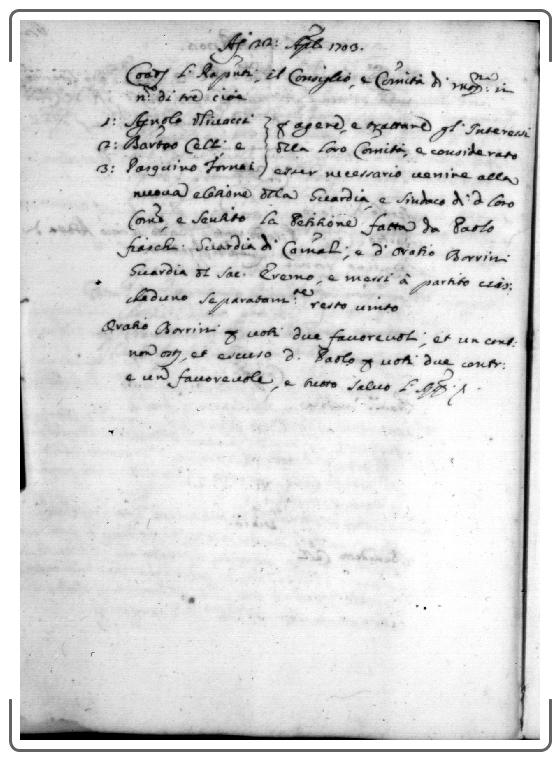 Adj 22: Aple 1703.
Coadj li Raputi, il Consiglio, e Comità di mogna: in
no: di tre cioè
1: Agnolo
2: Barto Celli e
3: Pasquino Fornai
p agere, e trattare gl'Interessi
della loro Comità, e considerato
esser necessario venire alla
nuova elezione della Guardia, e Sindaco di d. loro
Como, e sentito la Petitione fatta da Paolo
fiaschi Guardia di Camal:, e d'Oratio Borrini
Guardia del Sac: Eremo, e messi à partito cias:
cheduno separatamte: resto vinto
Oratio Borrini p voti due favorevoli, et un cont:
non ost, et escuso d. Paolo p voti due contr:
e un favorevole, e tutto salvo